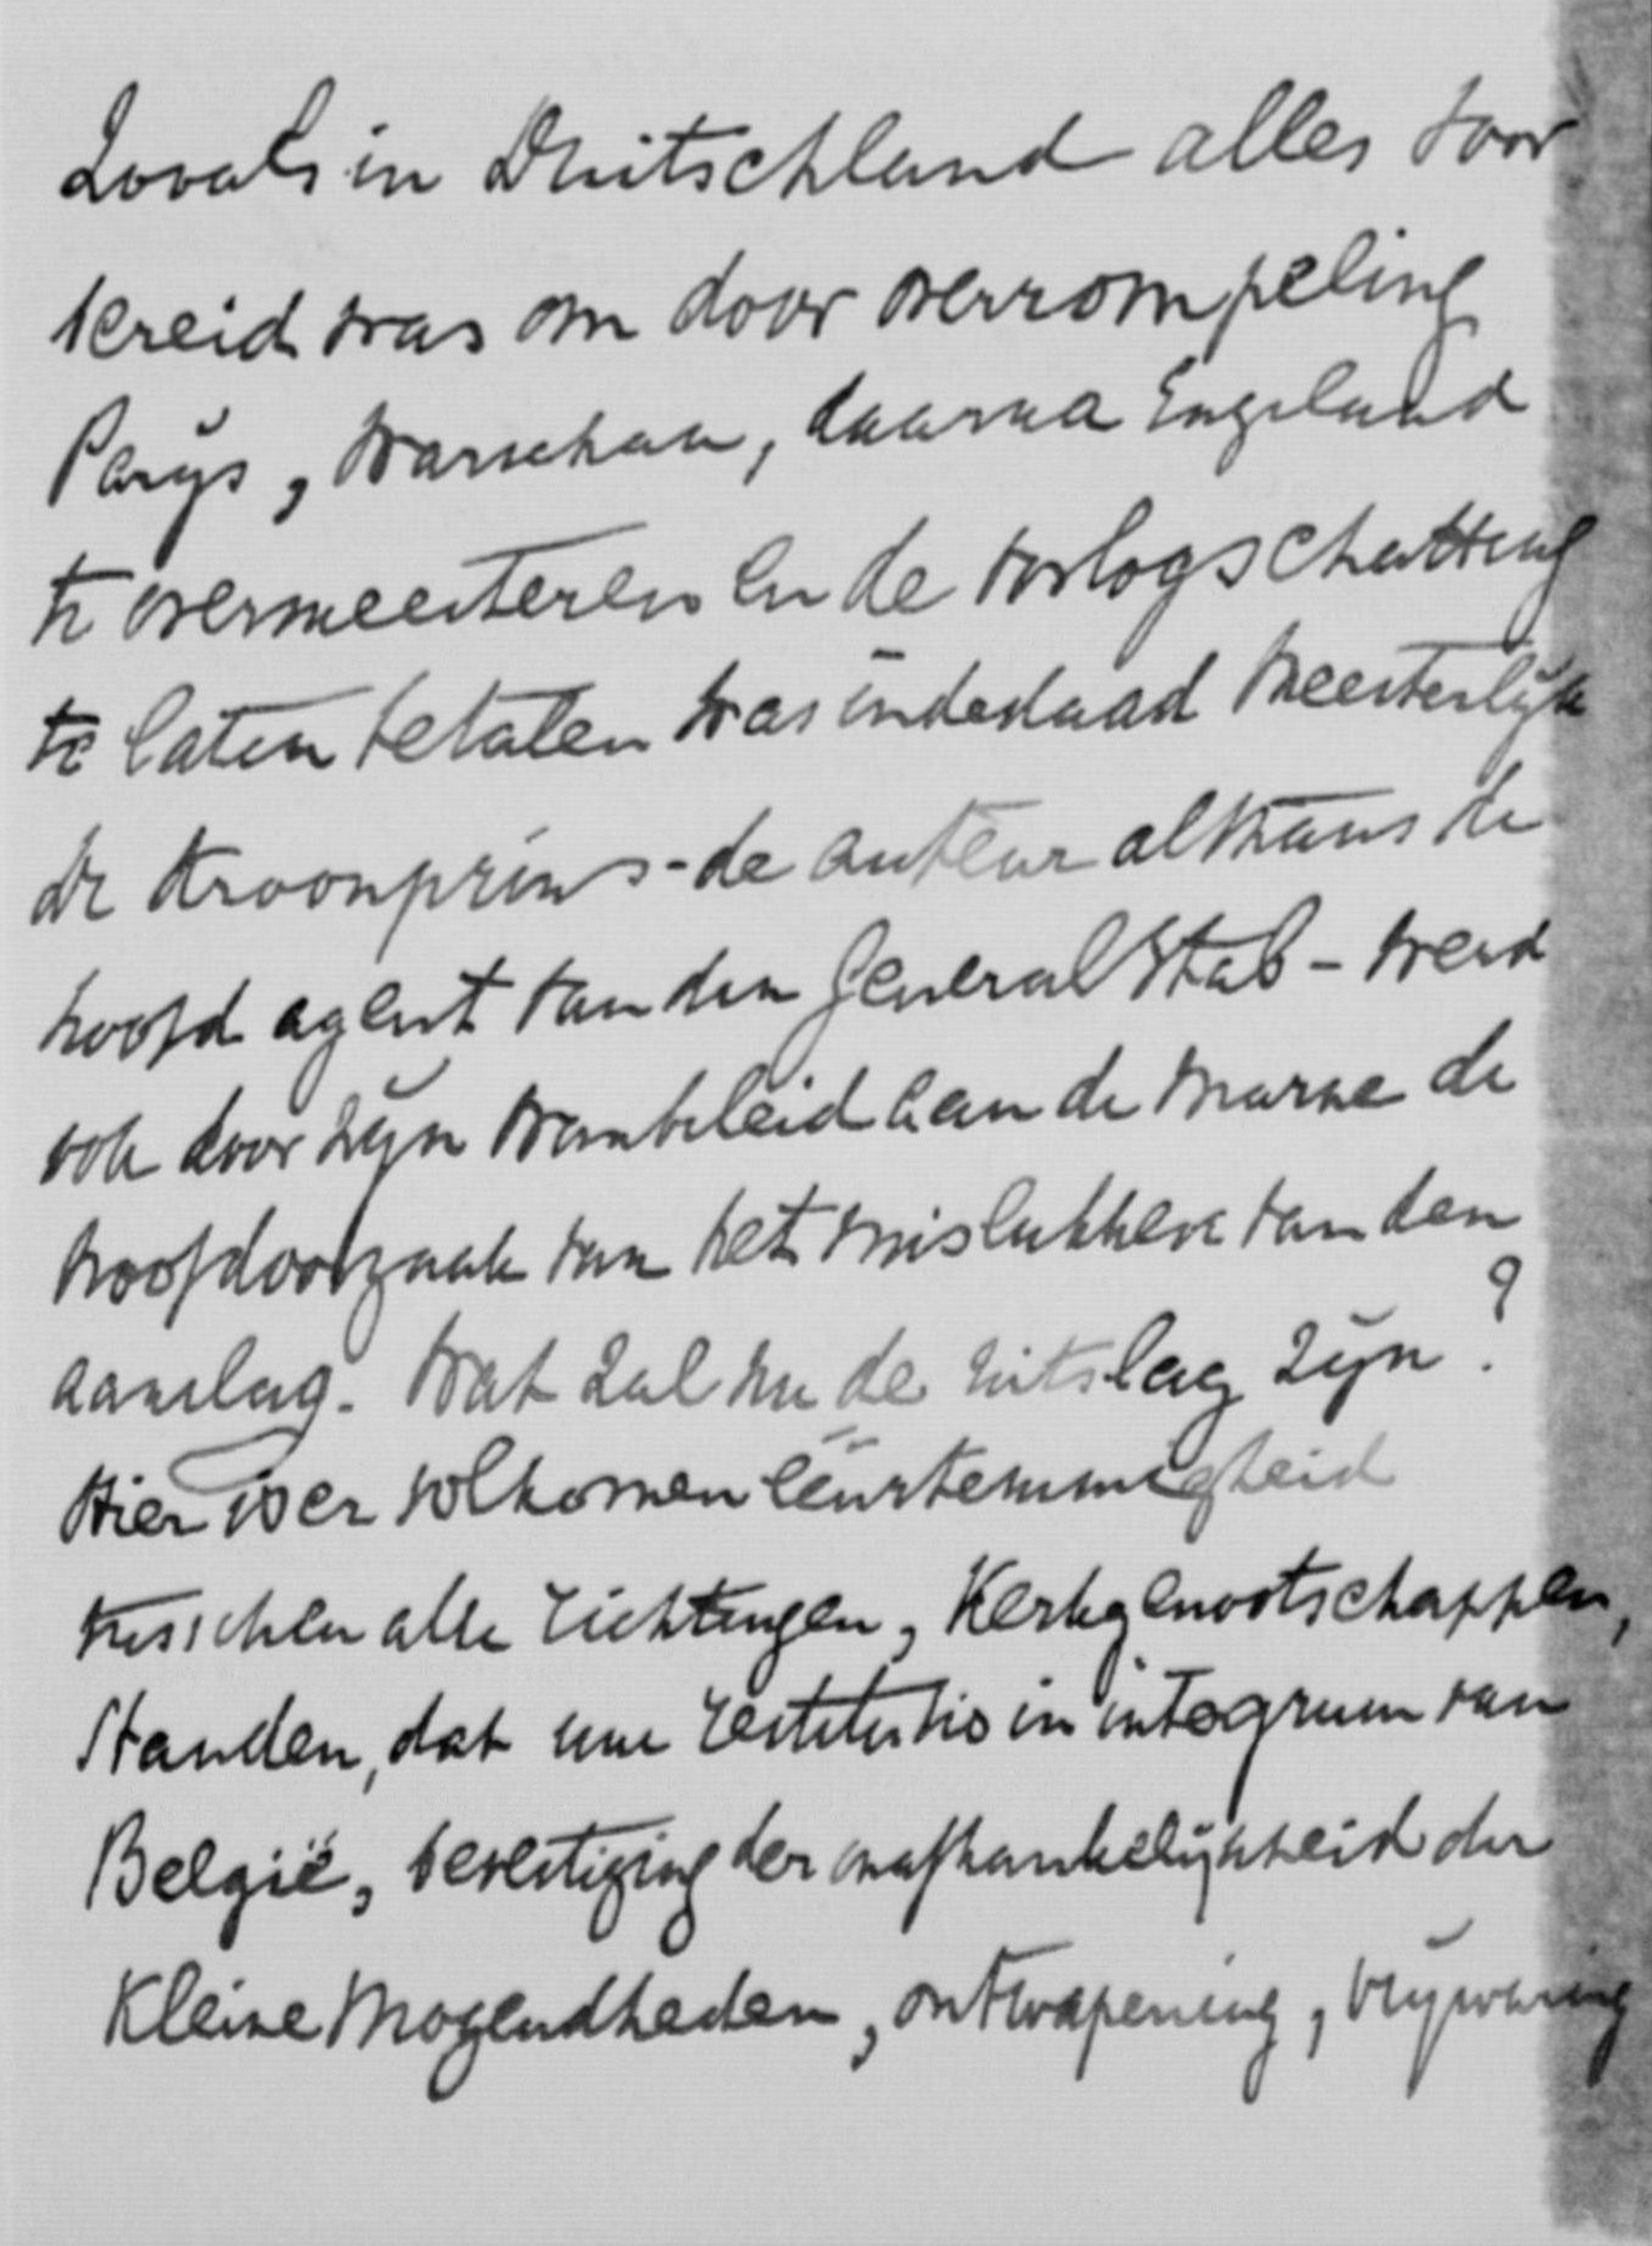 Zooals in Duitschland alles voor
bereid was om door overrompeling
Parijs, Warschau, daarna Engeland
te overmeesteren en de oorlogschatting
te laten betalen was inderdaad meesterlijk
De Kroonprins - de auteur althans de
hoofd agent van den General Stab - werd
ook door zijn wanbeleid aan de Marne de
hoofdoorzaak van het mislukken van den
aanslag. Wat zal nu de uitslag zijn?
Hier is er volkomen eenstemmigheid
tusschen alle richtingen, Kerkgenootschappen,
Standen, dat eene restitutio in integrum van
België, bevestiging der onafhankelijkheid der
Kleine Mogendheden, ontwapening, vrijwaring